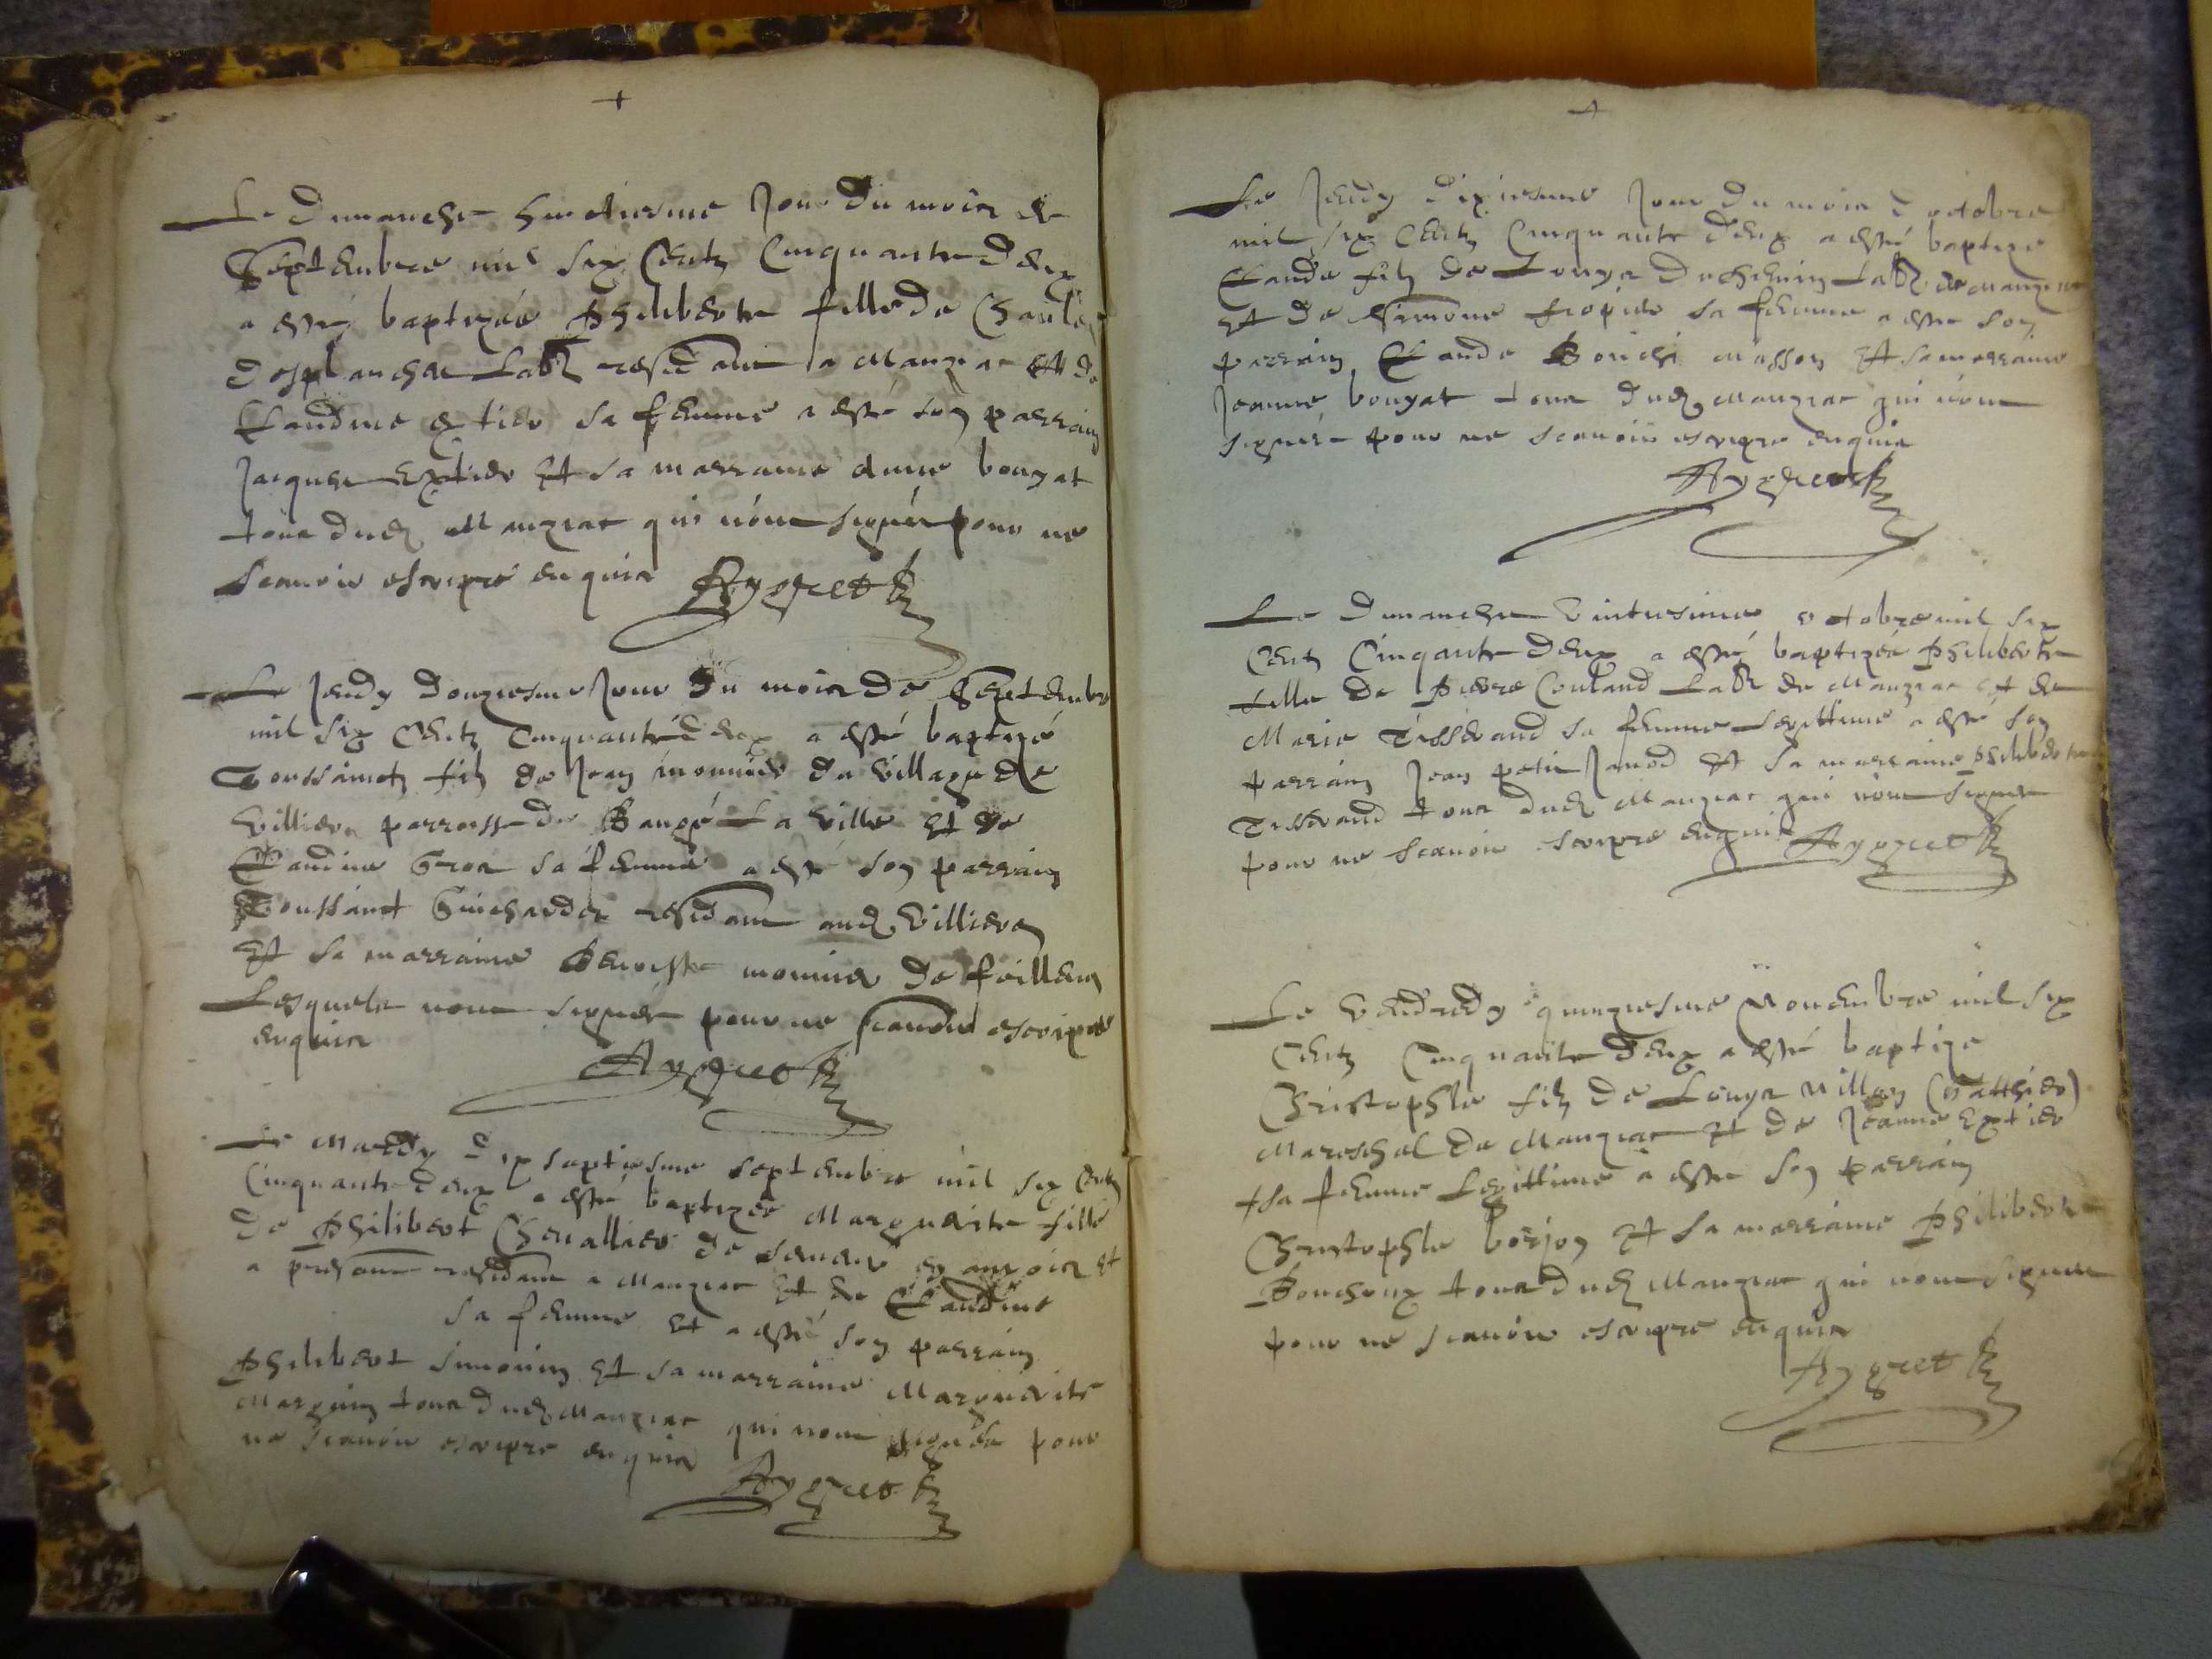 +
Le dimanche huictiesme Jour du mois de
Septembre mil six Centz Cinquante deux
a esté baptizée Philiberte fille de Charles
desplanche Labr residant a Manziat Et de
Claudine extier sa femme a esté son parrain
Jacques Extier Et sa marraine Anne bouyat
tous dud Manziat qui n'ont signés pour ne
scavoir escripre enquis Aygret
Le Jeudy douziesme Jour du mois de Septembre
mil six Centz Cinquante deux a esté baptizé
Toussainctz filz de Jean monnier du village de
Villiers parroisse de Baugé La Ville Et de
Claudine Gros sa femme a esté son parrain
Toussainct Guichardet residant aud Villiers
Et sa marraine Benoiste monnier de feillens
Lesquels n'ont signés pour ne scavoir escripre
enquis
Aygret
Le Mardy dix septiesme septembre mil six Centz
Cinquante deux a esté baptizée Marguerite fille
de Philibert Chevallier de et
a presant residant a Manziat Et de Claudine
sa femme Et a esté son parrain
Philibert simonin Et sa marraine Marguerite
Marguin tous dud Manziat qui n'ont signés pour
ne scavoir escripre enquis
Aygret
+
Le Jeudy dixiesme Jour du mois d octobre
mil six Centz Cinquante deux a esté baptize
Claude filz de Louys duchemin Labr de Manziat
Et de Simone sa femme a esté son
parrain Claude Masson Et sa marraine
Jeanne bouyat tous dud Manziat qui n'ont
signés pour ne scavoir escripre enquis
Aygret
Le dimanche Vintiesime octobre mil six
Centz Cinqante deux a esté baptizée Philiberte
fille de Pierre Couland Labr de Manziat Et de
Marie Tisserand sa femme Legittime a esté son
parrain Jean petit Janod Et sa marraine Philiberte
Tisserand tous dud Manziat qui n'ont signes
pour ne scavoir escripre enquis Aygret
Le Vendredy quinziesme Novembre mil six
Centz Cinquante deux a esté baptize
Christophle filz de Louys (Gatthier)
Mareschal de Manziat Et de Jeanne Extier
sa femme Legittime a esté son parrain
Christophle borjon Et sa marraine Philiberte
Bouchoux tous dud Manziat qui n'ont signes
pour ne scavoir escripre enquis
Aygret